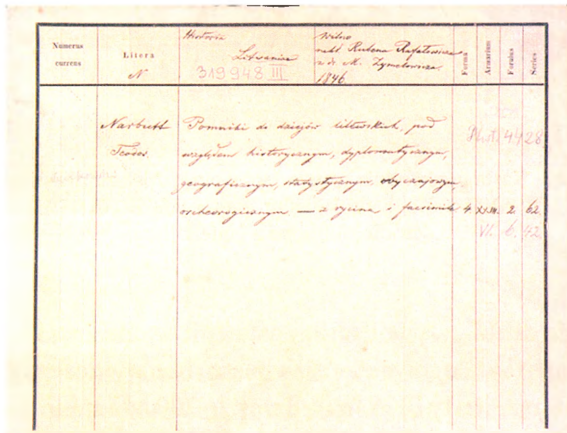 Numerus currens
Litera
N
Historia
Lituaniae
319948 III
Wilno
nakł. Rubena Rafałowicza
i dr. M. Zymelowicza
1846.
Forma
Armarium
Forulus
Series
Narbutt Pomniki do dziejów litewskich, pod
Teodor względem historycznym, dyplomatycznym,
geograficznym, statystycznym, obyczajowym,
archeologicznym — z ryciną i facsimile 4. XXIII. 2 62.
4428
VI. 6. 42.